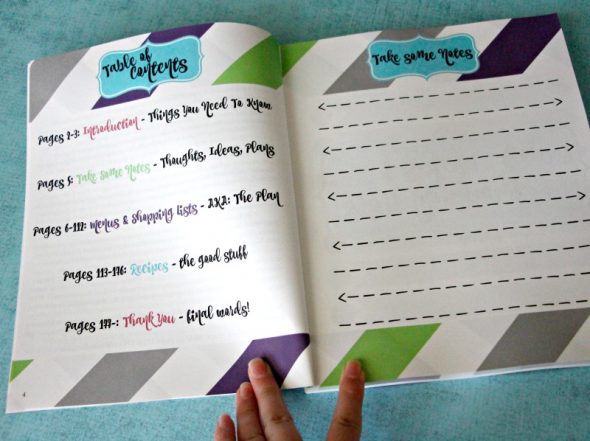 Table of
Contents
Pages 2-3: Introduction - Things You Need To Know
Pages 5: Take Some Notes - Thoughts, Ideas, Plans
Pages 6-112: Menus & Shopping Lists - The Plan
Pages 113-176: Recipes - the good stuff
Pages 177-: Thank You - final words!
4
Take Some Notes